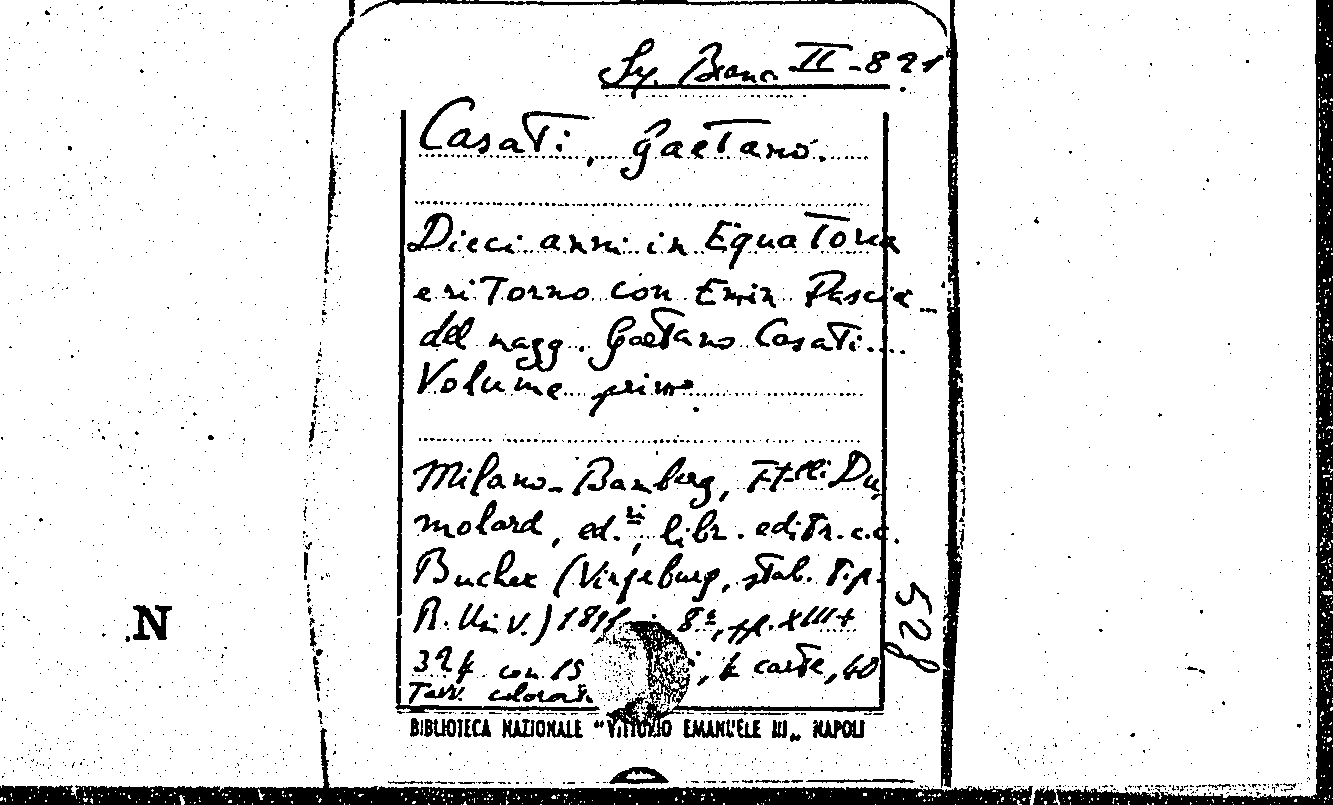 II-821
Casati, Gaetano.
Dieci anni in Equatoria
e ritorno con Emin Pascià
del magg. Gaetano Casati....
Volume primo.
Milano-Bamberg, Ft-lli Du,
molard, ed.ri, libr. editr. c.c.
Bucher stab. tip.
R. Univ.) 8°, pp. XIII+
con 15 , carte, 60
Tavv. colorat
N
BIBLIOTECA NAZIONALE "VITTORIO EMANUELE III„ NAPOLI